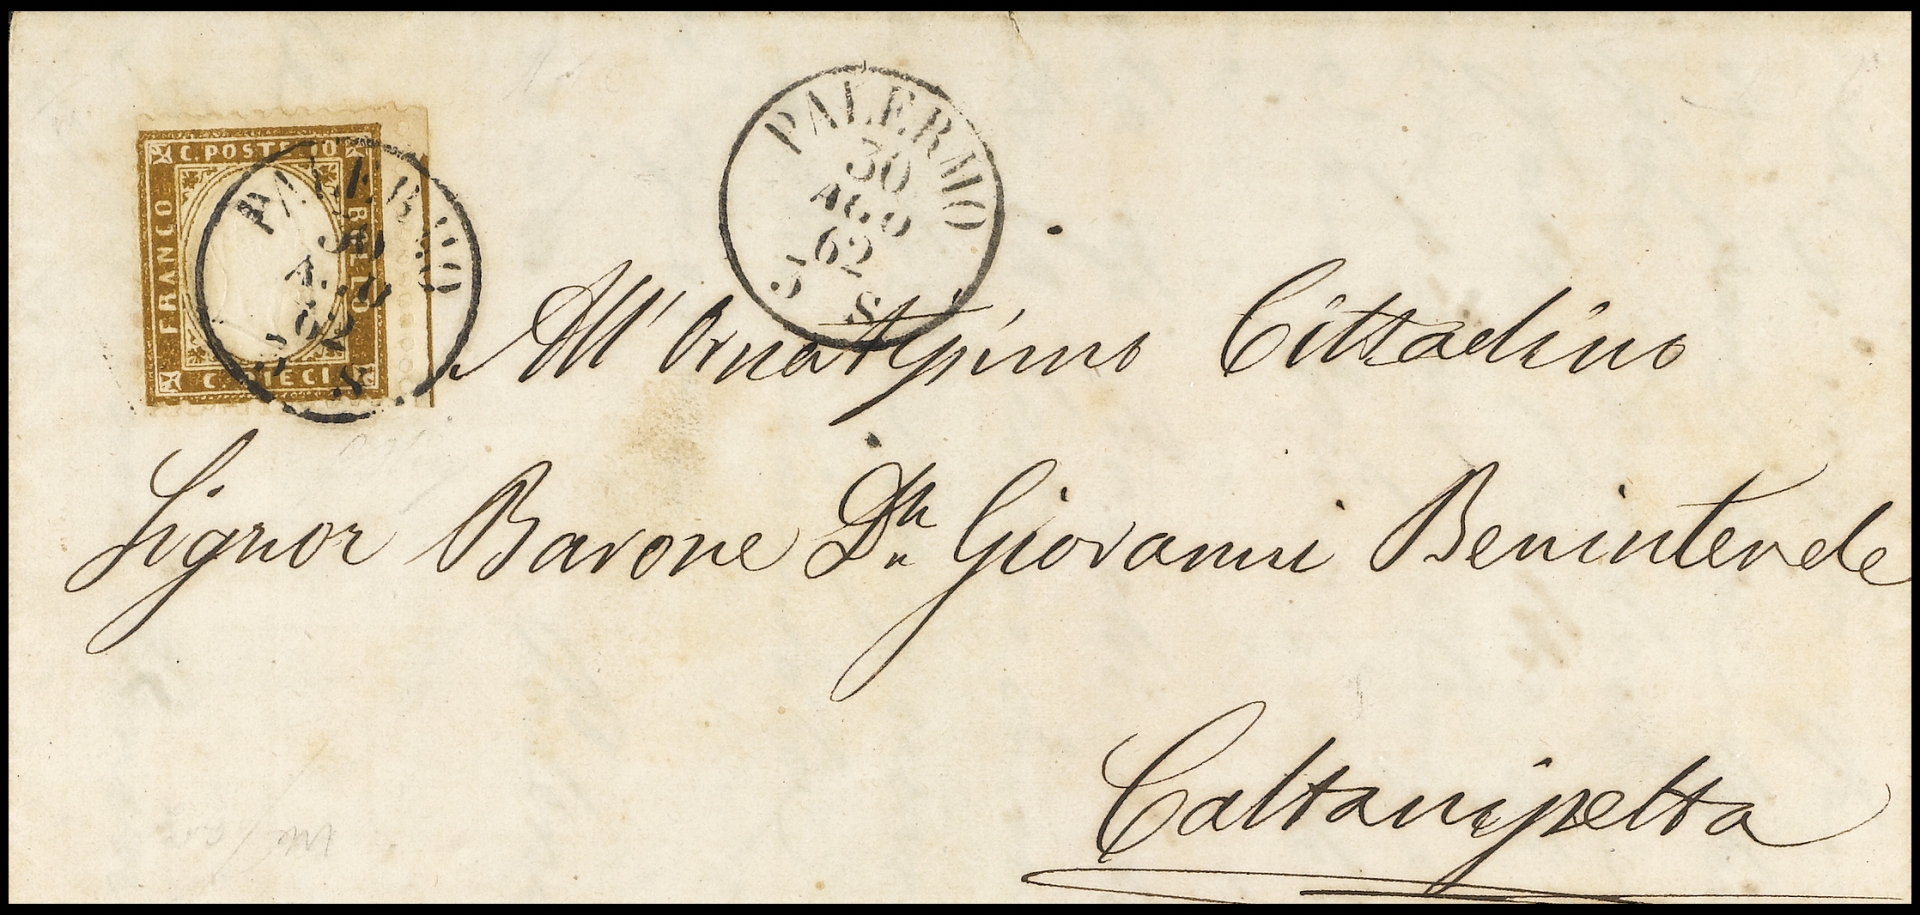 C. POSTE 10
FRANCO
BOLLO
C. DIECI
PALERMO
30
AGO
62
5 S
PALERMO
30
AGO
62
5 S
All' Ornatissimo Cittadino
Signor Barone Dn Giovanni Benintende
Caltanissetta